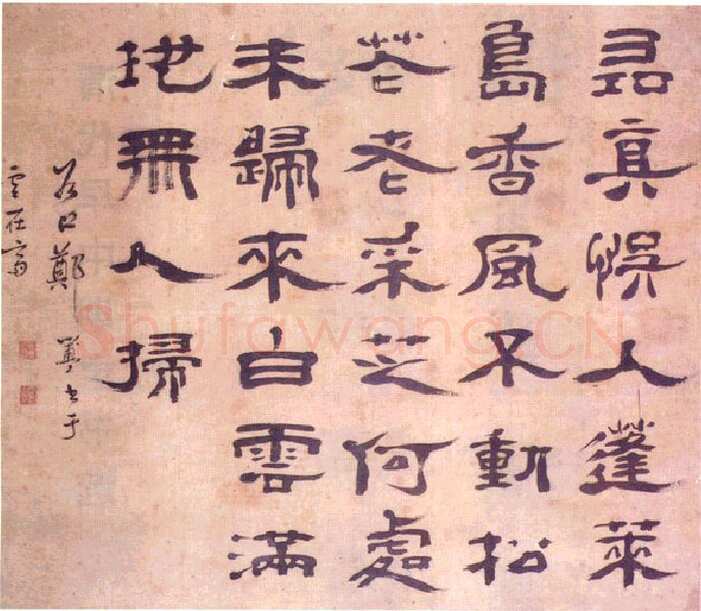 尋真悮人蓬萊
島香風不動松
花老采芝何處
未歸來白雲滿
地無人掃
谷口鄭簠書于
Shufawang.CN